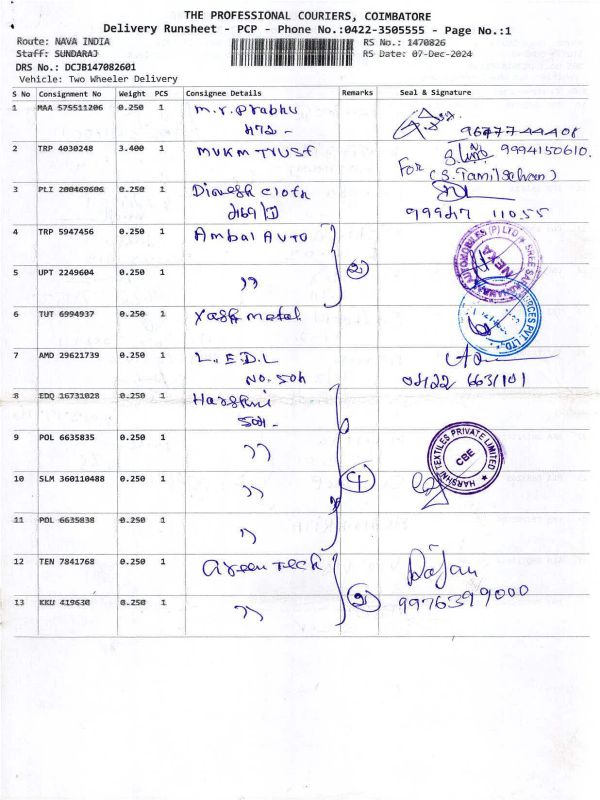 THE PROFESSIONAL COURIERS, COIMBATORE
Delivery Runsheet - PCP - Phone No.:0422-3505555 - Page No.:1
Route: NAVA INDIA
RS No.: 1470826
Staff: SUNDARAJ
RS Date: 07-Dec-2024
DRS No.: DCJB147082601
Vehicle: Two Wheeler Delivery
S No Consignment No Weight PCS Consignee Details Remarks Seal & Signature
1 MAA 575511206 0.250 1 M.Y. Prabhu
2 TRP 4030248 3.400 1 MVKM Trust 9994150610
For (S. Tamilselvan)
3 PLI 200469606 0.250 1 Dinesh cloth
99947 11055
4 TRP 5947456 0.250 1 Ambal Auto
5 UPT 2249604 0.250 1 ,, 2
6 TUT 6994937 0.250 1 Yash metal
7 AMD 29621739 0.250 1 L.E.D.L
0422 6631101
8 EDQ 16731028 0.250 1 Harshni
9 POL 6635835 0.250 1 ,,
HARSHNI TEXTILES PRIVATE LIMITED
CBE
10 SLM 360110488 0.250 1 ,, 4
11 POL 6635838 0.250 1 ,,
12 TEN 7841768 0.250 1 Green Tech Rajan
13 KKU 419630 0.250 1 ,, 2 9976399000